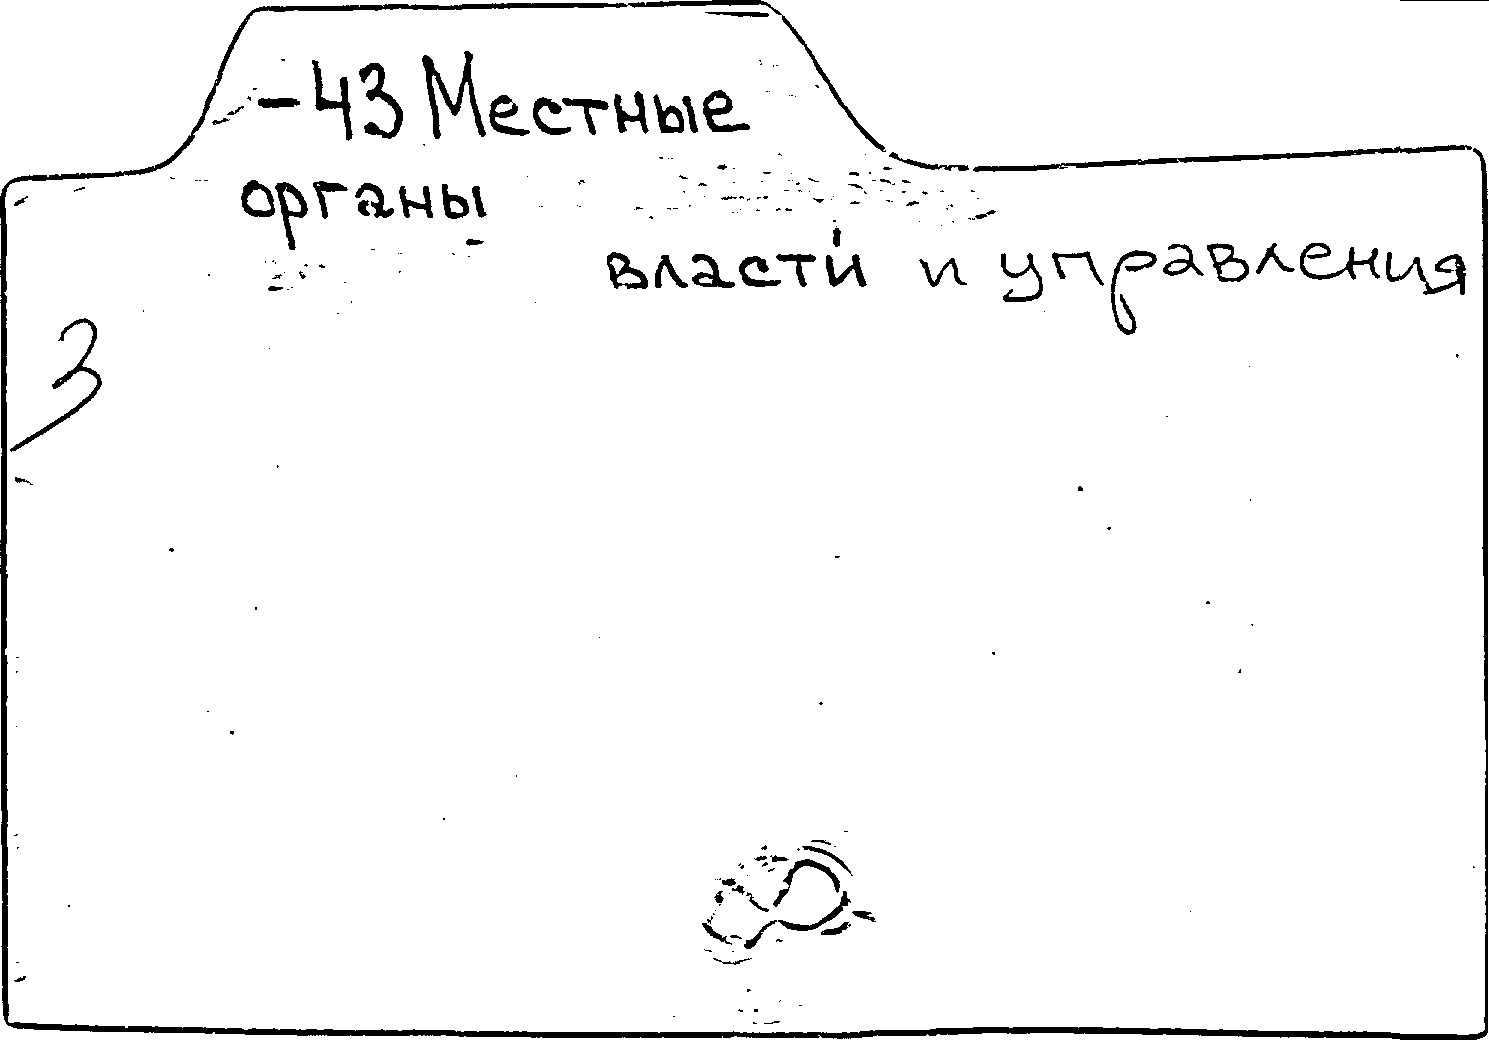 -43 Местные
органы
власти и управления
3